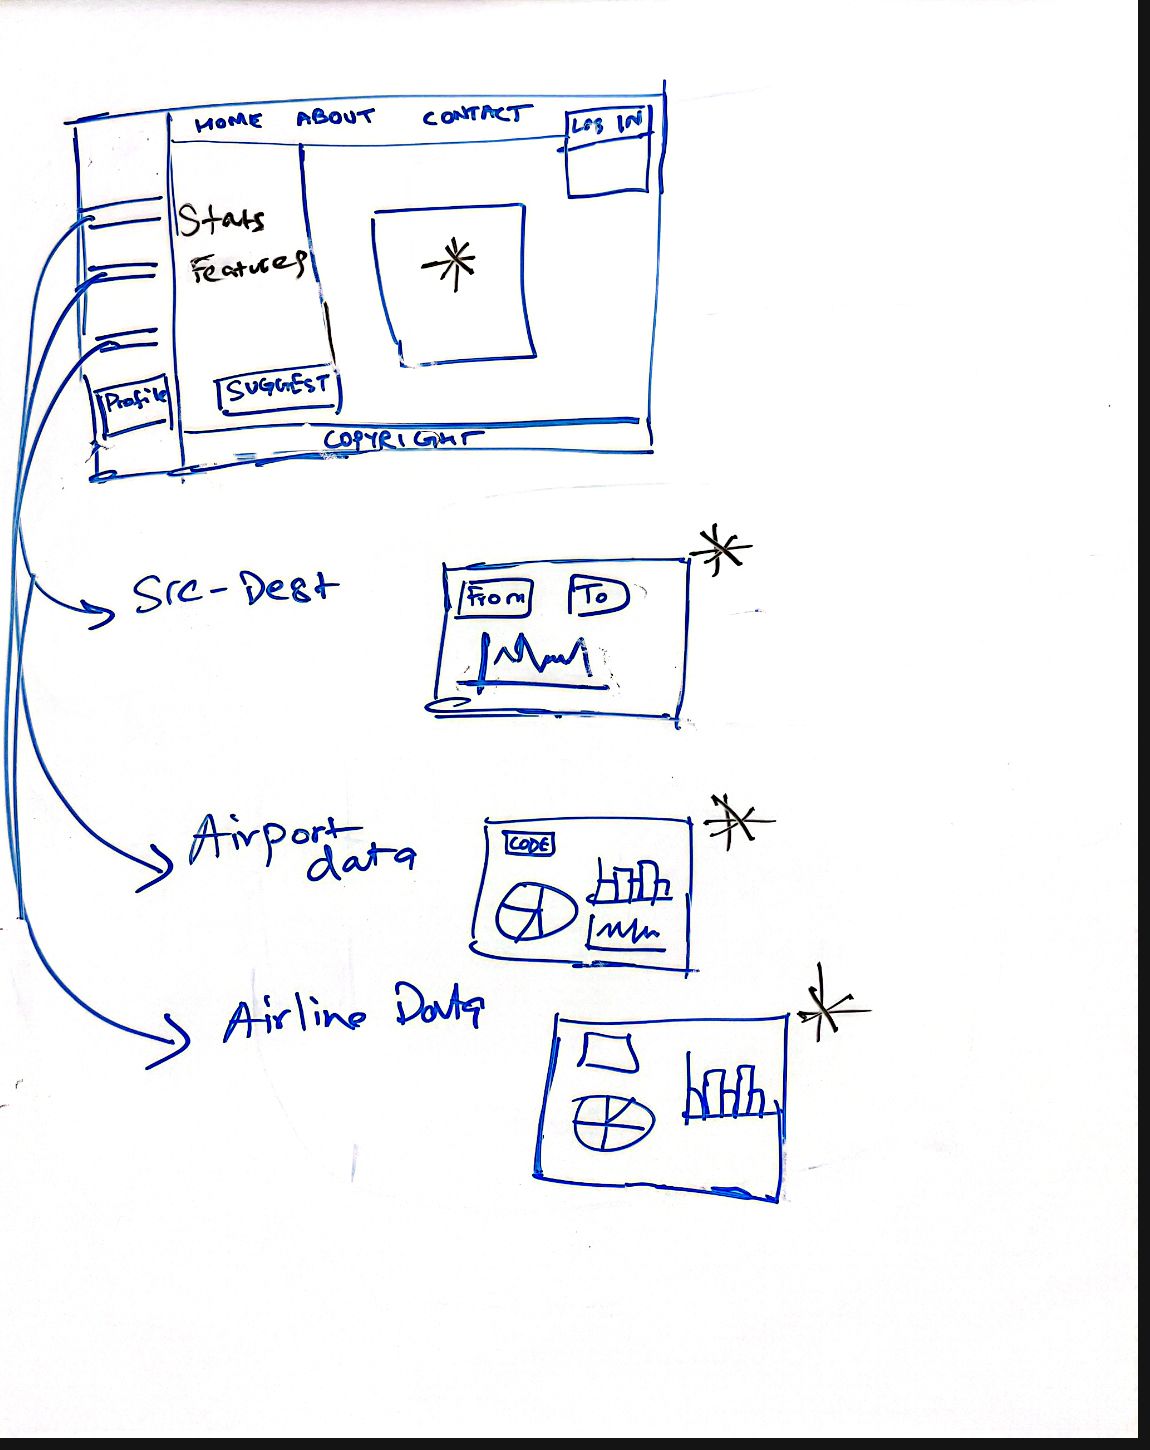 HOME ABOUT CONTACT LOG IN
Stats
Features
Profile
SUGGEST
COPYRIGHT
Src-Dest
From To
Airport
data
CODE
Airline Data